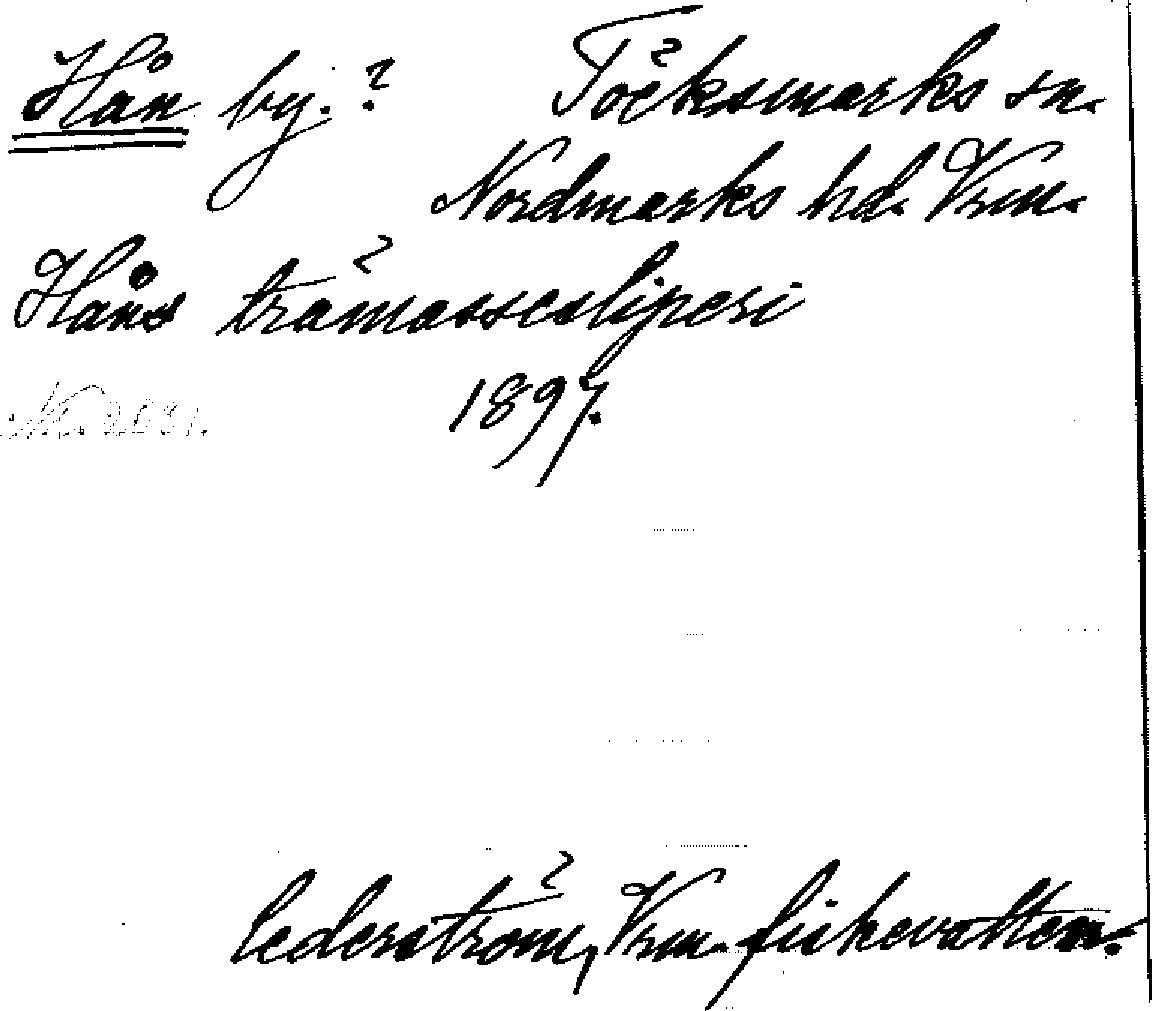 Hån by.? Töcksmarks sn.
Nordmarks hd. Vrm.
Håns trämassesliperi
1897.
Cederström, Vrm. fiskevatten.